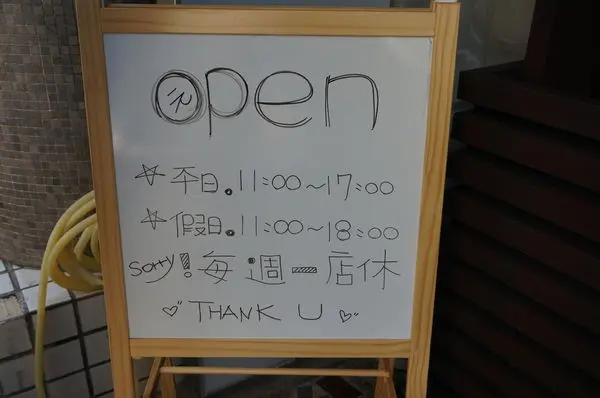 open
☆平日.11:00~17:00
☆假日.11:00~18:00
sorry!每週一店休
♡THANK U♡